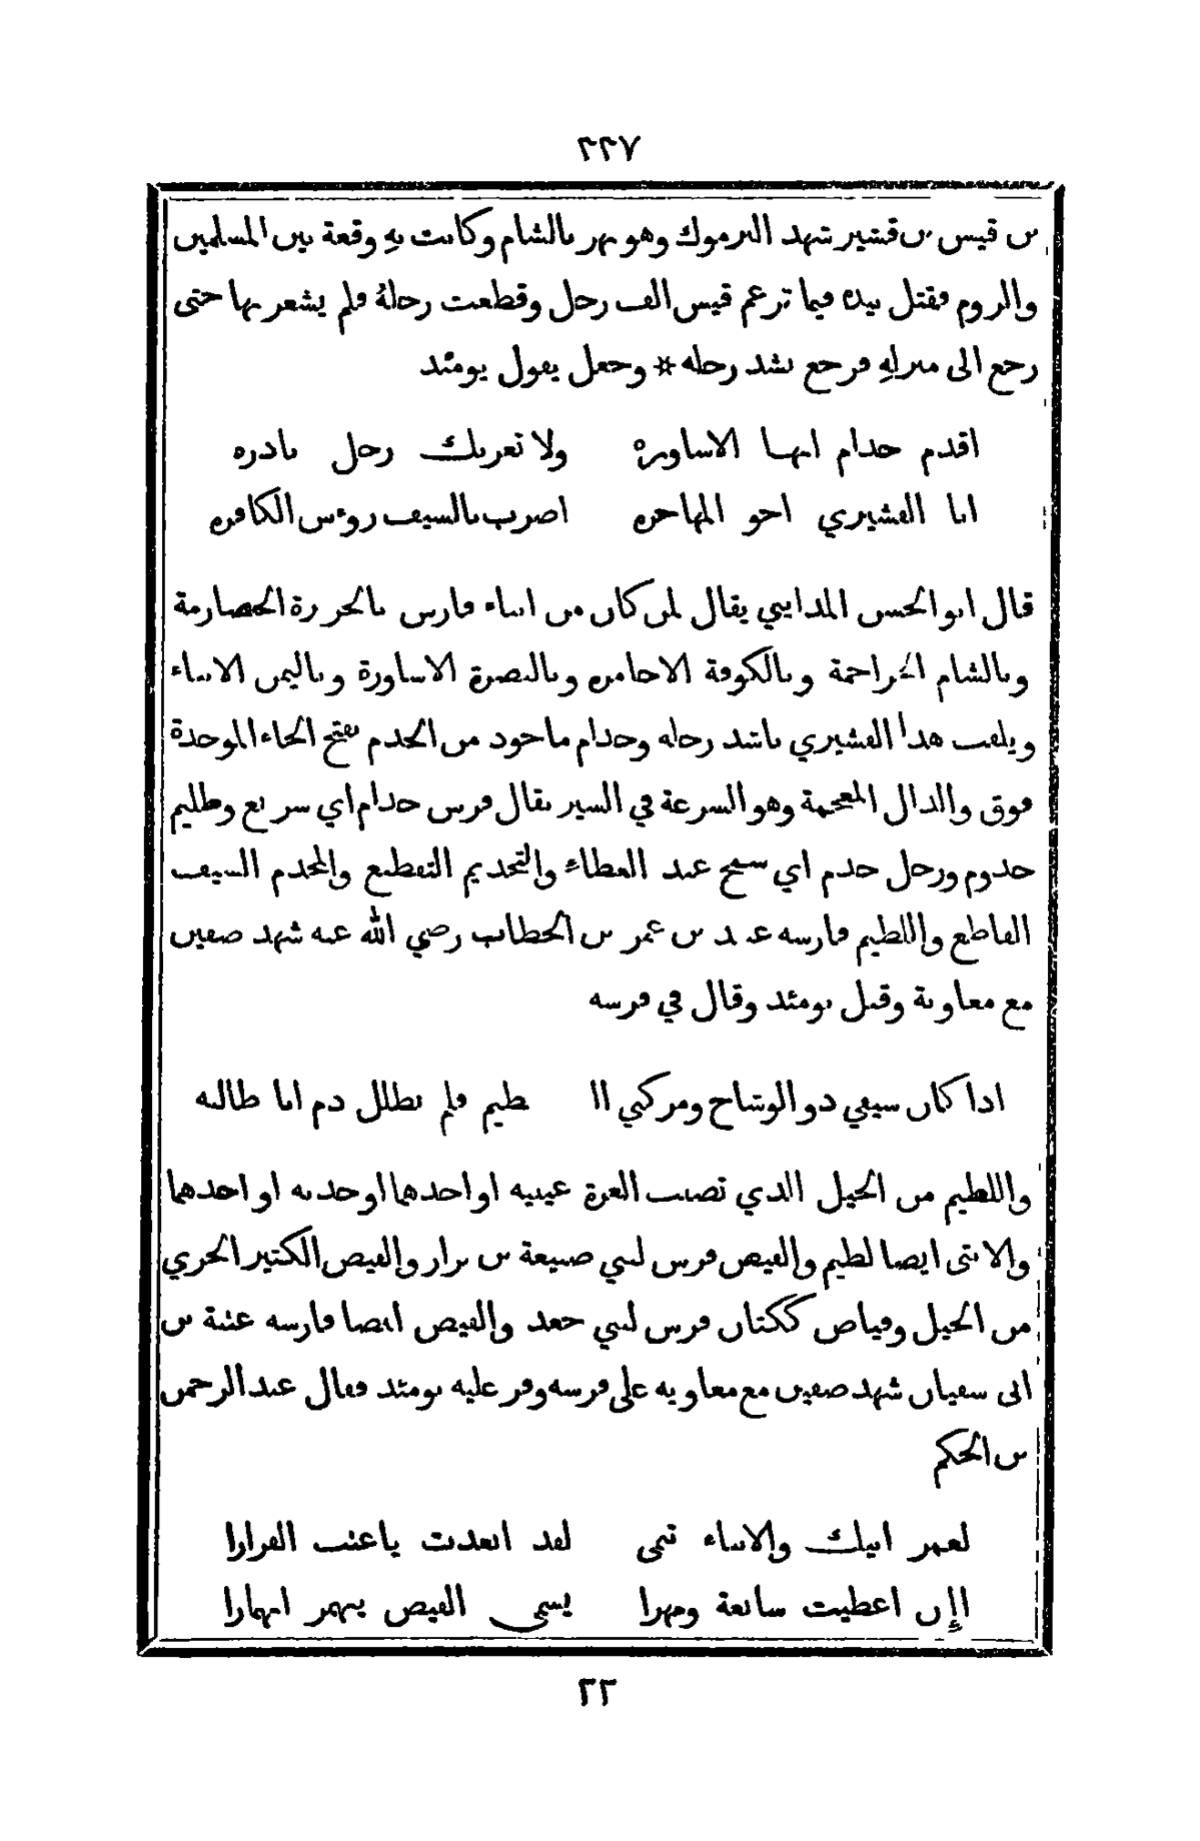 ٢٢٧
بن قيس بن قشير شهد اليرموك وهو نهر بالشام وكانت به وقعة بين المسلمين
والروم فقتل بيده فيما تزعم قيس الف رجل وقطعت رجلهُ فلم يشعر بها حتى
رجع الى منزلهِ فرجع نشد رجله * وجعل يقول يومئذ
اقدم حذام انها الاساوره ولا تغرنك رجل نادره
انا القشيري اخو المهاجره اضرب بالسيف روءس الكافره
قال ابو الحسن المدايني يقال لمن كان من ابناء فارس بالجزيرة الخضارمة
وبالشام الجراجمة وبالكوفة الاحامرة وبالبصرة الاساورة وباليمن الابناء
ويلقب هذا القشيري ناشد رجله وحذام ماخوذ من الحذم بفتح الحاء الموحدة
فوق والذال المعجمة وهو السرعة في السير يقال فرس حذام اي سريع وظليم
حذوم ورجل حذم اي سمح عند العطاء والتحذيم التقطيع والمحذم السيف
القاطع واللطيم فارسه عبيد بن عمر بن الخطاب رضي الله عنه شهد صفين
مع معاوية وقتل يومئذ وقال في فرسه
اذا كان سيفي ذو الوشاح ومركبي ال لطيم فلم يطلل دم انا طالبه
واللطيم من الخيل الذي تصيب الغرة عينيه او احدهما او خديه او احدهما
والانثى ايضا لطيم والفيض فرس لبني ضبيعة بن نزار والفيض الكثير الجري
من الخيل وفياض ككتان فرس لبني جعد والفيض ايضا فارسه عتبة بن
ابي سفيان شهد صفين مع معاويه على فرسه وفر عليه يومئذ فقال عبد الرحمن
بن الحكم
لعمر ابيك والانباء تنمى لقد ابعدت ياعتب الفرارا
االإن اعطيت سابغة ومهرا يسمى الفيض ينهمر انهمارا
٢٢